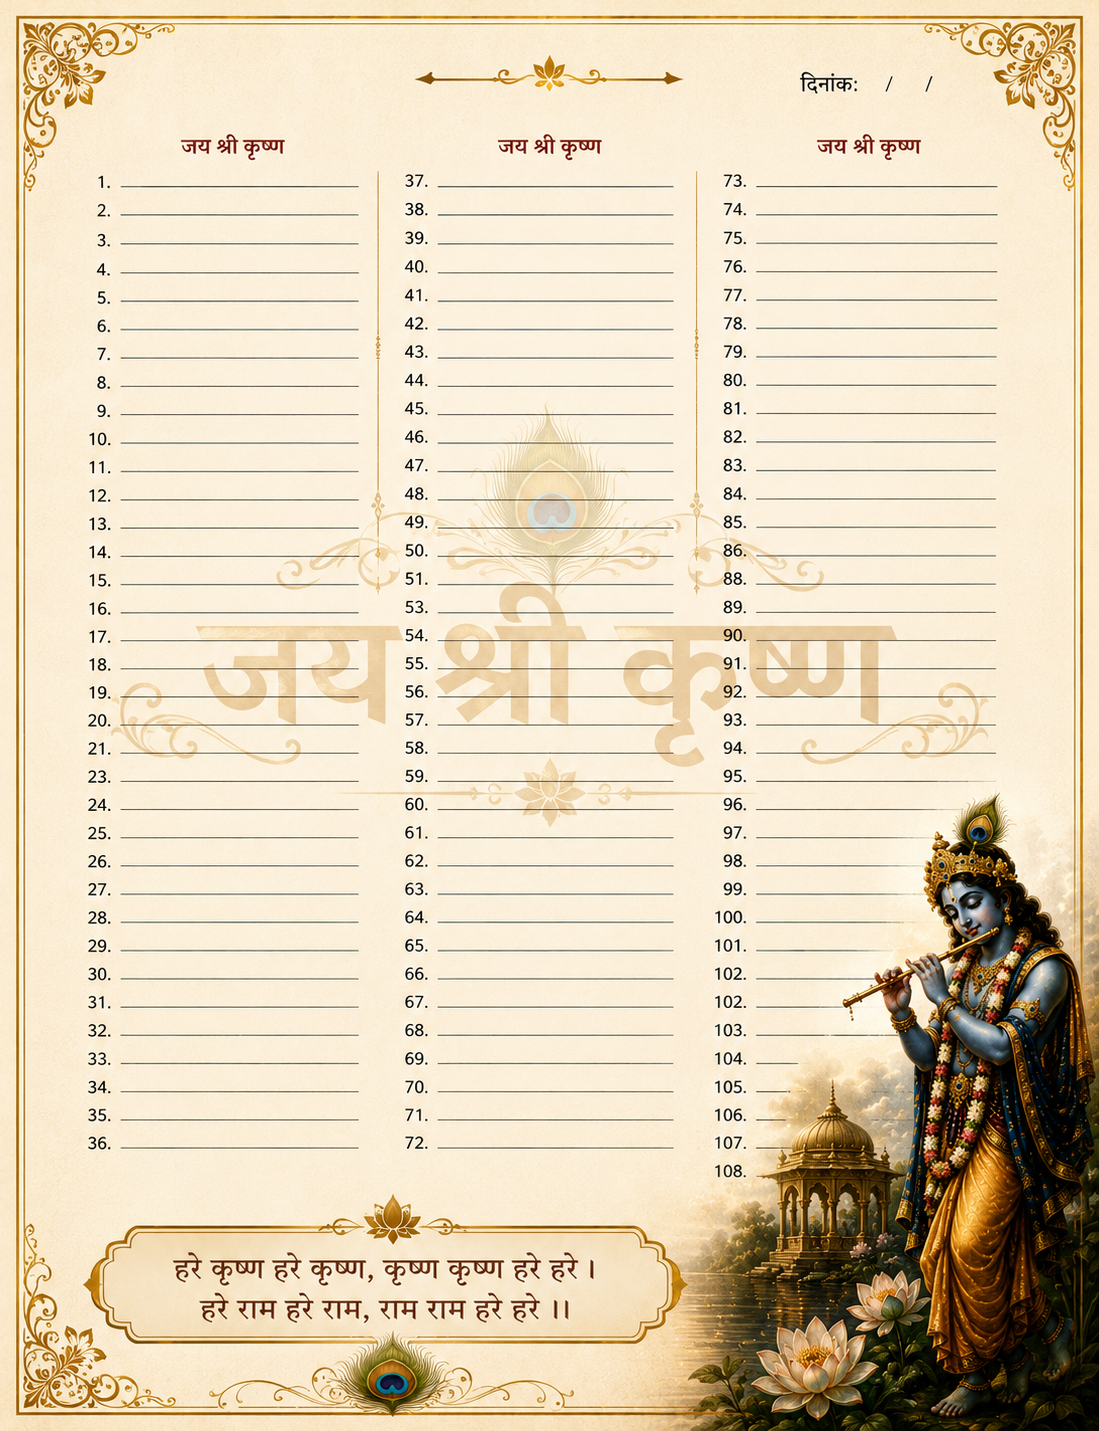 दिनांक: / /
जय श्री कृष्ण
1.
2.
3.
4.
5.
6.
7.
8.
9.
10.
11.
12.
13.
14.
15.
16.
17.
18.
19.
20.
21.
23.
24.
25.
26.
27.
28.
29.
30.
31.
32.
33.
34.
35.
36.
जय श्री कृष्ण
37.
38.
39.
40.
41.
42.
43.
44.
45.
46.
47.
48.
49.
50.
51.
53.
54.
55.
56.
57.
58.
59.
60.
61.
62.
63.
64.
65.
66.
67.
68.
69.
70.
71.
72.
जय श्री कृष्ण
73.
74.
75.
76.
77.
78.
79.
80.
81.
82.
83.
84.
85.
86.
88.
89.
90.
91.
92.
93.
94.
95.
96.
97.
98.
99.
100.
101.
102.
102.
103.
104.
105.
106.
107.
108.
जय श्री कृष्ण
हरे कृष्ण हरे कृष्ण, कृष्ण कृष्ण हरे हरे ।
हरे राम हरे राम, राम राम हरे हरे ।।